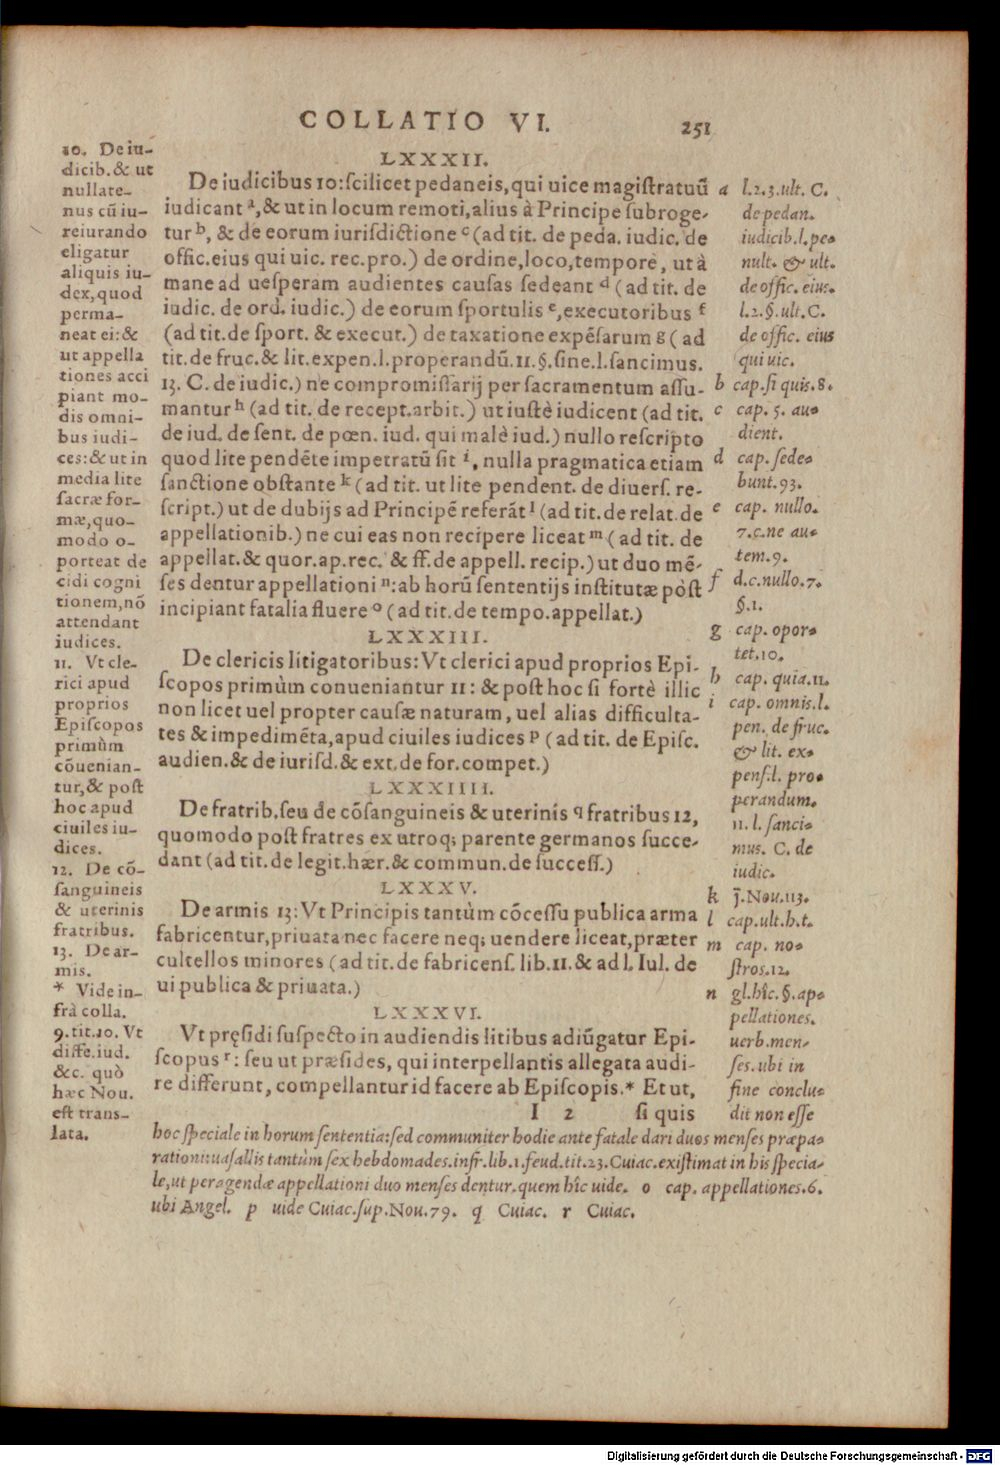 COLLATIO VI. 251
10. De iu-
dicib. & ut
nullate-
nus cũ iu-
reiurando
eligatur
aliquis iu-
dex, quod
perma-
neat ei: &
ut appella
tiones acci
piant mo-
dis omni-
bus iudi-
ces: & ut in
media lite
sacræ for-
mæ, quo-
modo o-
porteat de
cidi cogni
tionem, nõ
attendant
iudices.
11. Vt cle-
rici apud
proprios
Episcopos
primùm
cõuenian-
tur, & post
hoc apud
ciuiles iu-
dices.
12. De cõ-
sanguineis
& uterinis
fratribus.
13. De ar-
mis.
* Vide in-
frà colla.
9. tit. 10. Vt
diffe. iud.
&c. quò
hæc Nou.
est trans-
lata.
LXXXII.
De iudicibus 10: scilicet pedaneis, qui uice magistratuũ
iudicant a, & ut in locum remoti, alius à Principe subroge-
tur b, & de eorum iurisdictione c (ad tit. de peda. iudic. de
offic. eius qui uic. rec. pro.) de ordine, loco, tempore, ut à
mane ad uesperam audientes causas sedeant d (ad tit. de
iudic. de ord. iudic.) de eorum sportulis e, executoribus f
(ad tit. de sport. & execut.) de taxatione expẽsarum g (ad
tit. de fruc. & lit. expen. l. properandũ. 11. §. sine. l. sancimus.
13. C. de iudic.) ne compromissarij per sacramentum assu-
mantur h (ad tit. de recept. arbit.) ut iustè iudicent (ad tit.
de iud. de sent. de pœn. iud. qui malè iud.) nullo rescripto
quod lite pendẽte impetratũ sit i, nulla pragmatica etiam
sanctione obstante k (ad tit. ut lite pendent. de diuers. re-
script.) ut de dubijs ad Principẽ referãt l (ad tit. de relat. de
appellationib.) ne cui eas non recipere liceat m (ad tit. de
appellat. & quor. ap. rec. & ff. de appell. recip.) ut duo mẽ-
ses dentur appellationi n: ab horũ sententijs institutæ pòst
incipiant fatalia fluere o (ad tit. de tempo. appellat.)
LXXXIII.
De clericis litigatoribus: Vt clerici apud proprios Epi-
scopos primùm conueniantur 11: & post hoc si fortè illic
non licet uel propter causæ naturam, uel alias difficulta-
tes & impedimẽta, apud ciuiles iudices p (ad tit. de Episc.
audien. & de iurisd. & ext. de for. compet.)
LXXXIIII.
De fratrib. seu de cõsanguineis & uterinis q fratribus 12,
quomodo post fratres ex utroq; parente germanos succe-
dant (ad tit. de legit. hær. & commun. de success.)
LXXXV.
De armis 13: Vt Principis tantùm cõcessu publica arma
fabricentur, priuata nec facere neq; uendere liceat, præter
cultellos minores (ad tit. de fabricens. lib. 11. & ad l. Iul. de
ui publica & priuata.)
LXXXVI.
Vt pręsidi suspecto in audiendis litibus adiũgatur Epi-
scopus r: seu ut præsides, qui interpellantis allegata audi-
re differunt, compellantur id facere ab Episcopis. * Et ut,
I 2 si quis
a l. 2. 3. ult. C.
de pedan.
iudicib. l. pe-
nult. & ult.
de offic. eius.
l. 2. §. ult. C.
de offic. eius
qui uic.
b cap. si quis. 8.
c cap. 5. au-
dient.
d cap. sede-
bunt. 93.
e cap. nullo.
7. c. ne au-
tem. 9.
f d. c. nullo. 7.
§. 1.
g cap. opor-
tet. 10.
h cap. quia. 11.
i cap. omnis. l.
pen. de fruc.
& lit. ex-
pens. l. pro-
perandum.
11. l. sanci-
mus. C. de
iudic.
k j. Nou. 113.
l cap. ult. h. t.
m cap. no-
stros. 12.
n gl. hîc. §. ap-
pellationes.
uerb. men-
ses. ubi in
fine conclu-
dit non esse
hoc speciale in horum sententia: sed communiter hodie ante fatale dari duos menses præpa-
rationi: uasallis tantùm sex hebdomades. infr. lib. 1. feud. tit. 23. Cuiac. existimat in his specia-
le, ut peragendæ appellationi duo menses dentur. quem hîc uide. o cap. appellationes. 6.
ubi Angel. p uide Cuiac. sup. Nou. 79. q Cuiac. r Cuiac.
Digitalisierung gefördert durch die Deutsche Forschungsgemeinschaft - DFG